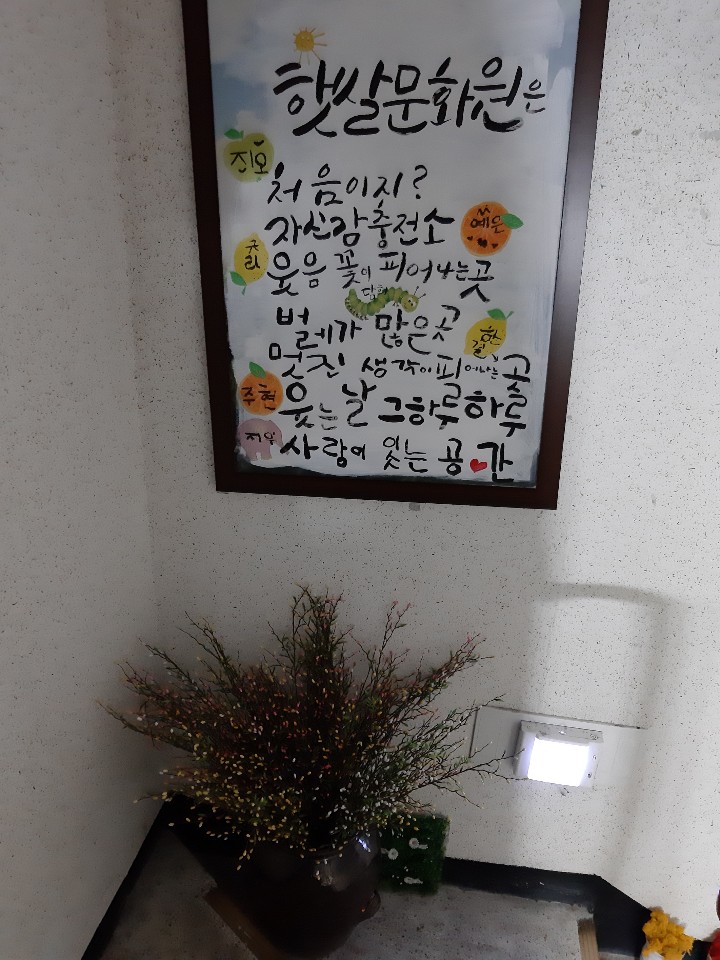 햇쌀문화원은
진오
처음이지?
자신감충전소
예은
규리
웃음 꽃이 피어나는곳
벌레가 많은곳
한결
멋진 생각이피어나는곳
주현
웃는날 그하루하루
지우
사랑이 있는 공간